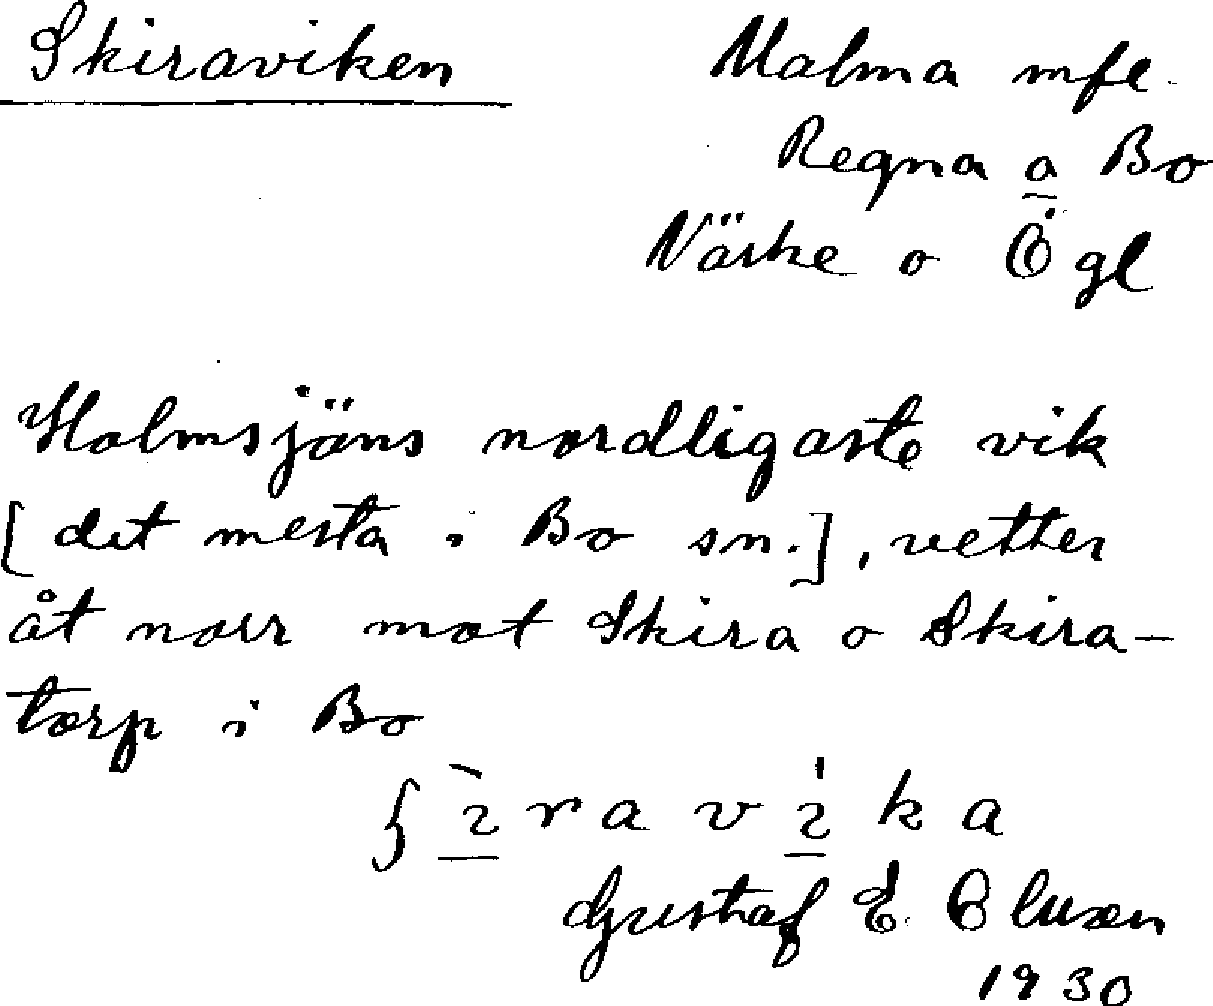 Skiraviken
Malma mfl.
Regna o Bo
Närke o Ögl
Holmsjöns nordligaste vik
[det mesta i Bo sn.], vetter
åt norr mot Skira o Skira-
torp i Bo
Gustaf E Cluæn
1930